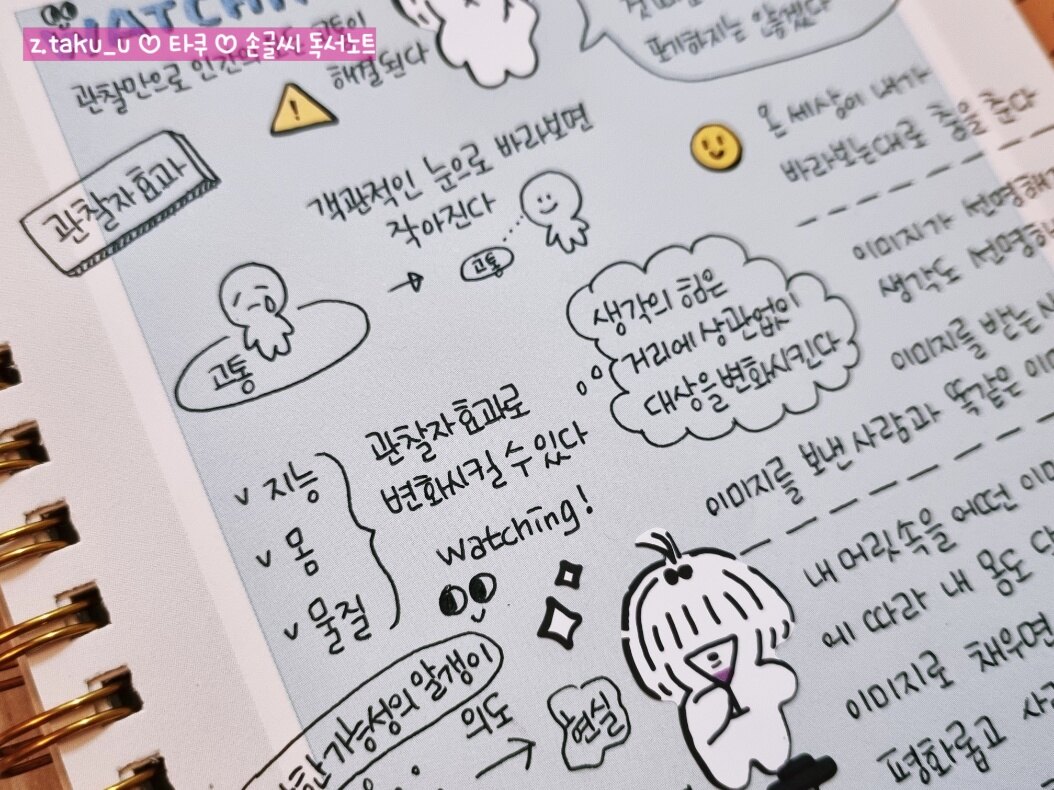 WATCHIN
z.taku_u ♡ 타쿠 ♡ 손글씨 독서노트
관찰만으로 인간의
고통이
해결된다
포기하지는 않겠다
관찰자효과
객관적인 눈으로 바라보면
작아진다
고통
고통
온 세상이 내가
바라보는대로 춤을 춘다
이미지가 선명해
생각도 선명하
생각의 힘은
거리에 상관없이
대상을 변화시킨다
이미지를 받는 사
이미지를 보낸 사람과 똑같은 이미
v 지능
v 몸
v 물질
관찰자효과로
변화시킬 수 있다
watching!
내 머릿속을 어떤 이미
에 따라 내 몸도
이미지로 채우면
평화롭고
가능성의 알갱이
의도
현실